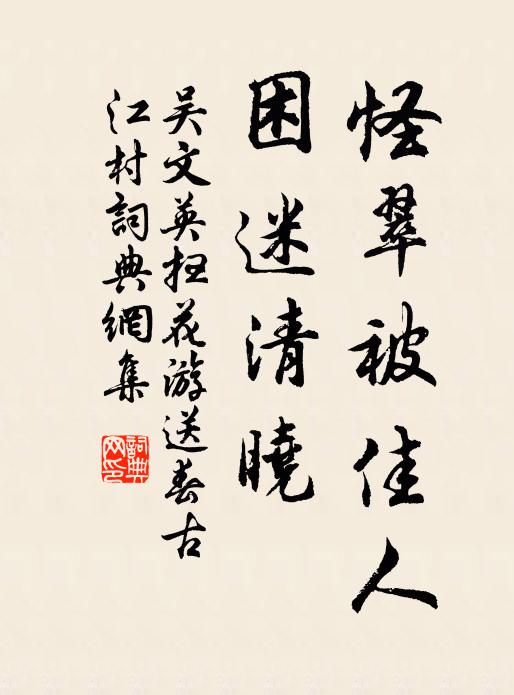 怪翠被佳人
困迷清曉
吳文英扫花游送春古
江村詞典網集
詞典
网印